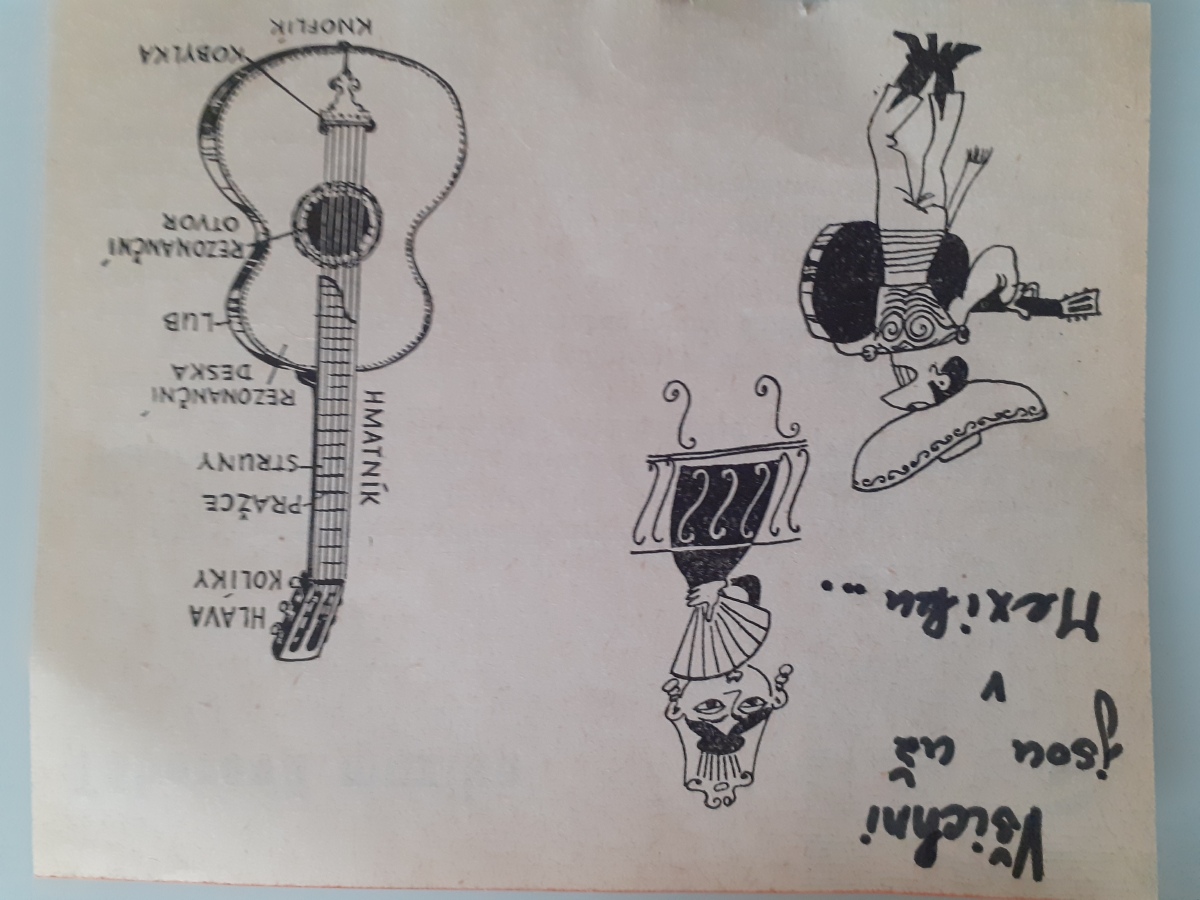 Všichni
jsou už
v
Mexiku...
HLAVA
KOLÍKY
PRAŽCE
STRUNY
HMATNÍK
REZONANČNÍ
DESKA
LUB
REZONANČNÍ
OTVOR
KOBYLKA
KNOFLÍK